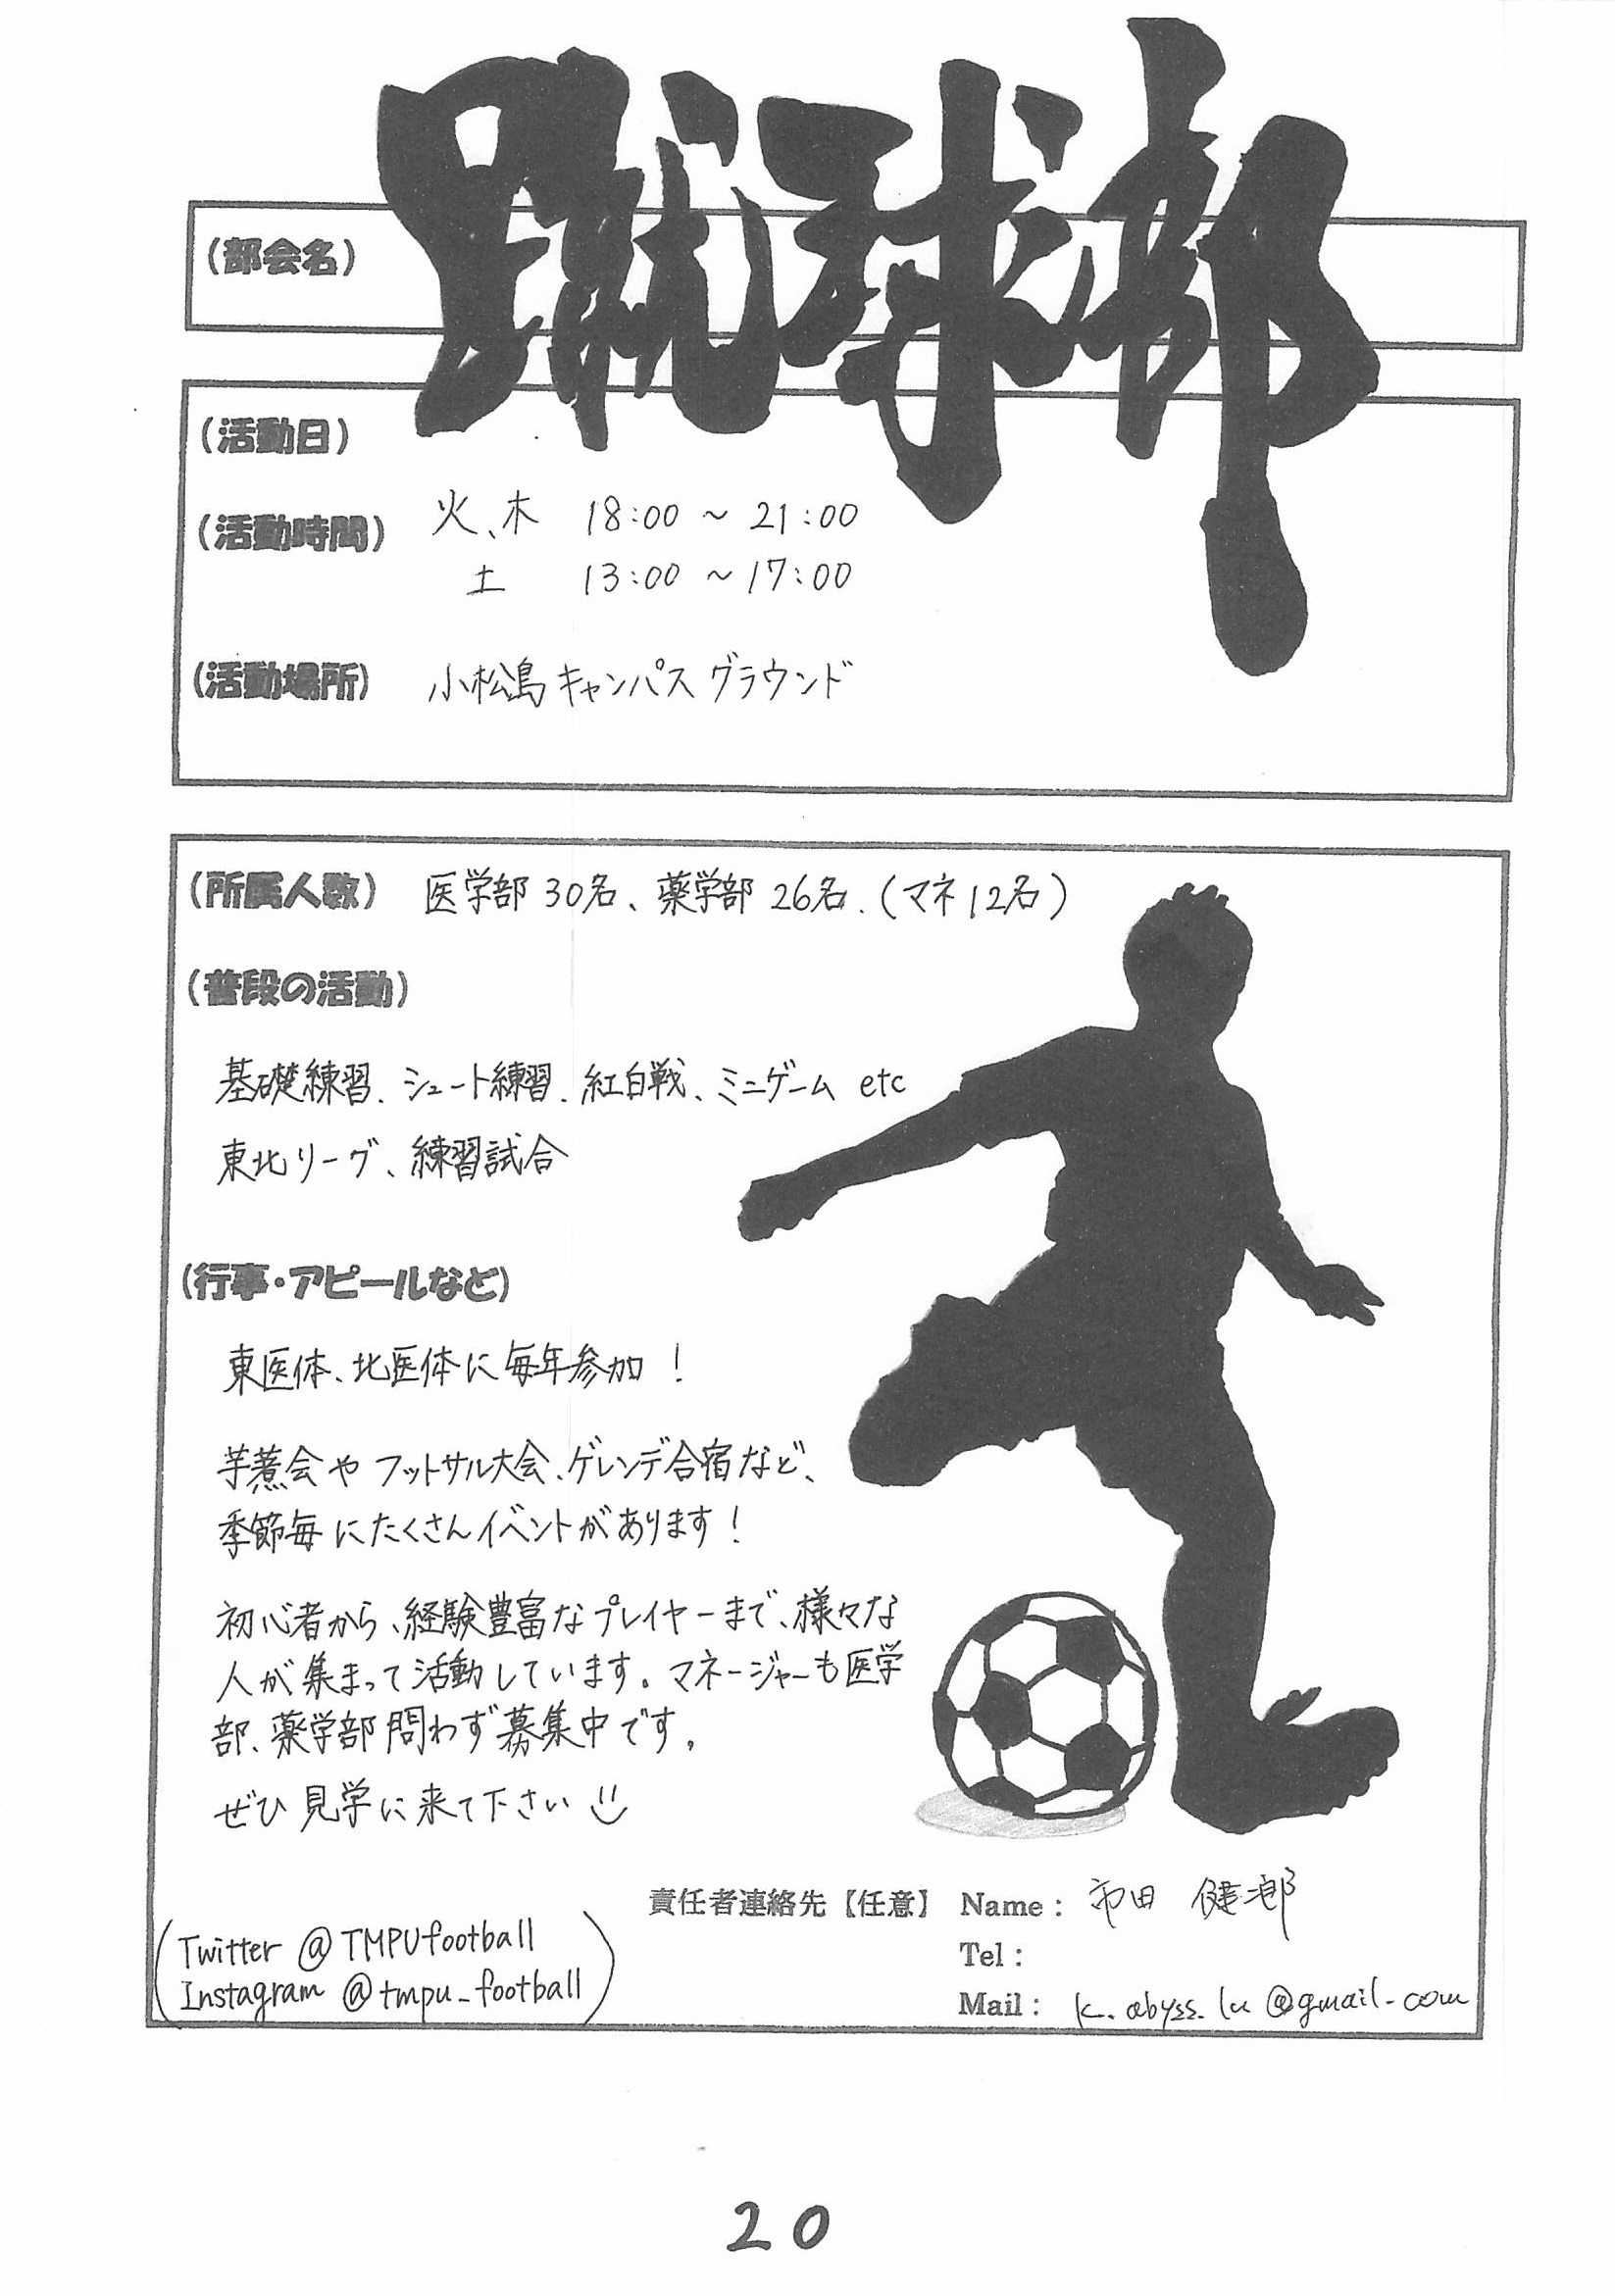 蹴球部
(部会名)
(活動日)
(活動時間) 火、木 18:00 ~ 21:00
土 13:00 ~ 17:00
(活動場所) 小松島キャンパスグラウンド
(所属人数) 医学部 30名、薬学部 26名、(マネ12名)
(普段の活動)
基礎練習、シュート練習、紅白戦、ミニゲーム etc
東北リーグ、練習試合
(行事・アピールなど)
東医体、北医体に毎年参加!
芋煮会やフットサル大会、ゲレンデ合宿など、
季節毎にたくさんイベントがあります!
初心者から、経験豊富なプレイヤーまで、様々な
人が集まって活動しています。マネージャーも医学
部、薬学部問わず募集中です。
ぜひ見学に来て下さい
責任者連絡先【任意】 Name: 市田 健次郎
Tel:
Mail: @gmail.com
(Twitter @TMPUfootball
Instagram @tmpu_football)
20